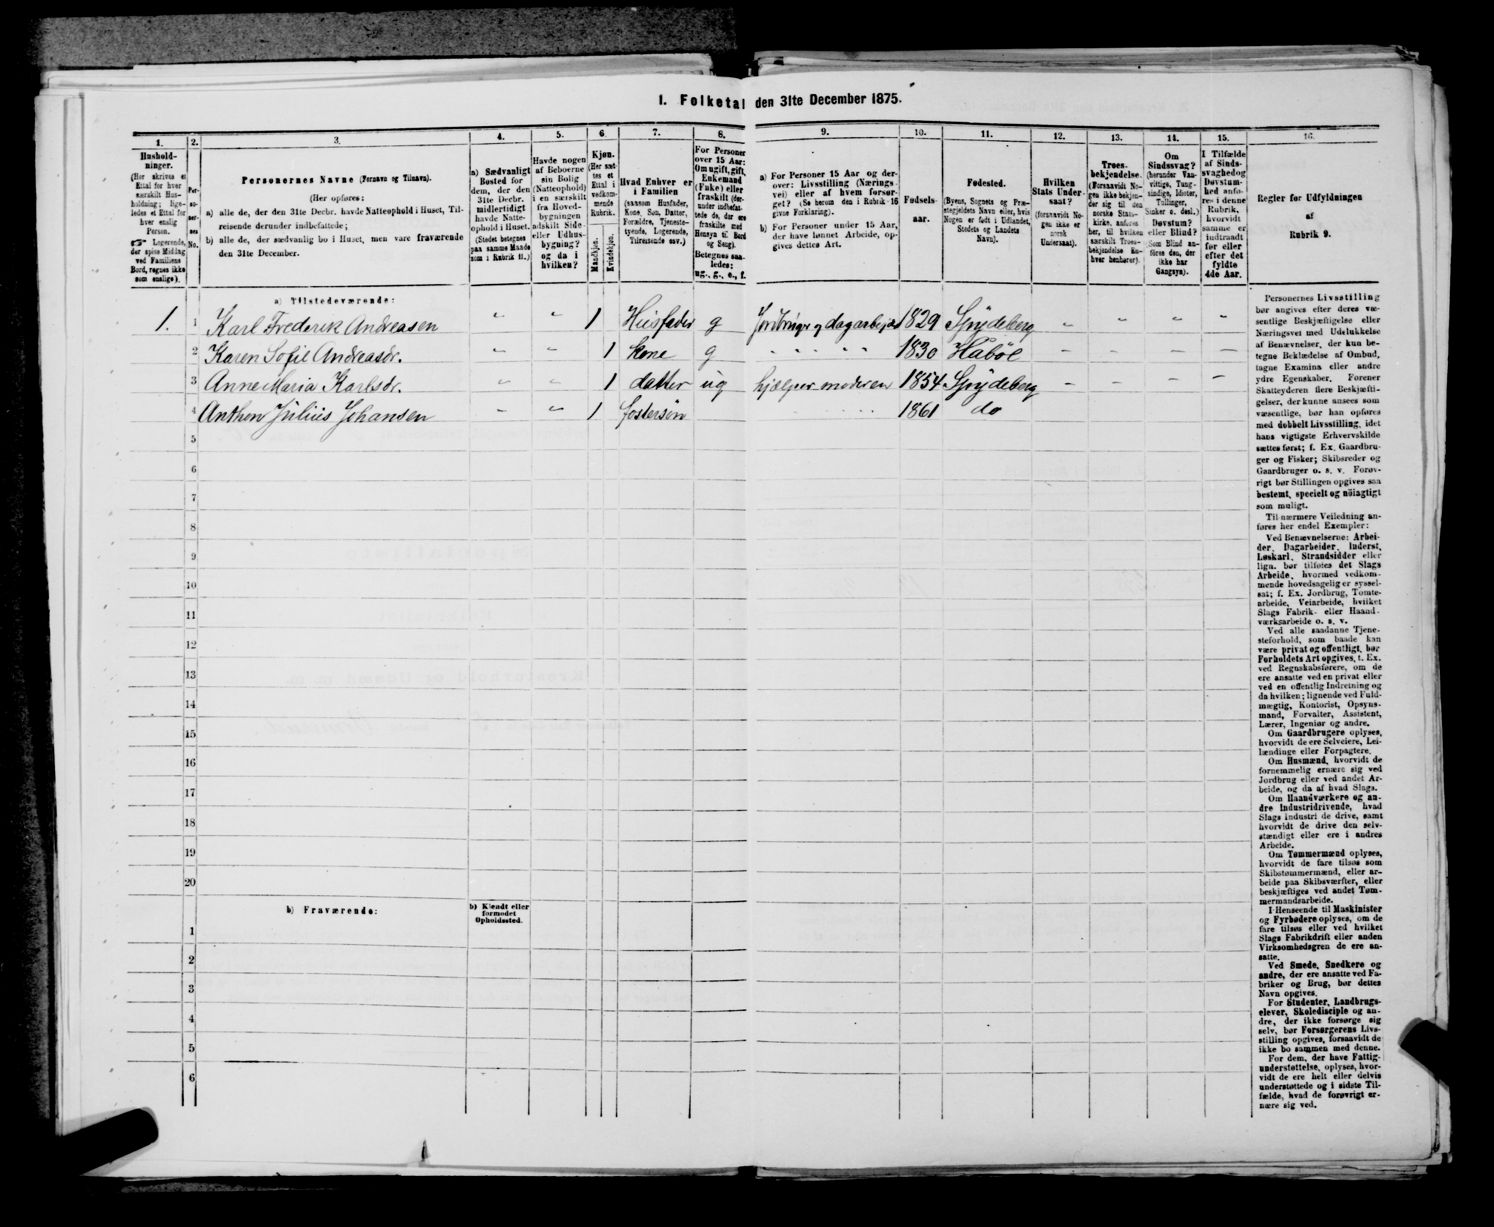 1. Folketal den 31te December 1875.
1. 2. 3. 4. 5. 6. 7. 8. 9. 10. 11. 12. 13. 14. 15. 16.
Hushold-
ninger.
(Her skrives et
Ettal for hver
særskilt Hus-
holdning; lige-
ledes et Ettal for
hver enslig
Person.
☞ Logerende,
der spise Middag
ved Familiens
Bord, regnes ikke
som enslige).
Per-
so-
ner-
nes
No.
Personernes Navne (Fornavn og Tilnavn).
(Her opføres:
a) alle de, der den 31te Decbr. havde Natteophold i Huset, Til-
reisende derunder indbefattede;
b) alle de, der sædvanlig bo i Huset, men vare fraværende
den 31te December.
a) Sædvanligt
Bosted for
dem, der den
31te Decbr.
midlertidigt
havde Natte-
ophold i Huset.
(Stedet betegnes
paa samme Maade
som i Rubrik 11.)
Havde nogen
af Beboerne
sin Bolig
(Natteophold)
i en særskilt
fra Hoved-
bygningen
adskilt Side-
eller Udhus-
bygning?
og da i
hvilken?
Kjøn.
(Her sæt-
tes et
Ettal i
vedkom-
mende
Rubrik.
Mandkjøn.
Kvindekjøn.
Hvad Enhver er
i Familien
(saasom Husfader,
Kone, Søn, Datter,
Forældre, Tjeneste-
tyende, Logerende,
Tilreisende osv.)
For Personer
over 15 Aar:
Om ugift, gift,
Enkemand
(Enke) eller
fraskilt (der-
under indbefat-
tede de, der ere
fraskilte med
Hensyn til Bord
og Seng).
Betegnes saa-
ledes:
ug., g., e., f.
a) For Personer 15 Aar og der-
over: Livsstilling (Nærings-
vei) eller af hvem forsør-
get? (Se herom den i Rubrik 16
givne Forklaring).
b) For Personer under 15 Aar,
der have lønnet Arbeide, op-
gives dettes Art.
Fødsels-
aar.
Fødested.
(Byens, Sognets og Præ-
stegjeldets Navn eller, hvis
Nogen er født i Udlandet,
Stedets og Landets
Navn).
Hvilken
Stats Under-
saat?
(foranvidt No-
gen ikke er
norsk
Undersaat).
Troes-
bekjendelse.
(Forsaavidt No-
gen ikke bekjen-
der sig til den
norske Stats-
kirke, anføres
her, til hvilken
særskilt Troes-
bekjendelse En-
hver henhører).
Om
Sindssvag?
(herunder Van-
vittige, Tung-
sindige, Idioter,
Tullinger,
Sinker o. desl.)
Døvstum?
eller Blind?
Som Blind an-
føres den, der
ikke har
Gangsyn).
I Tilfælde
af Sinds-
svaghed og
Døvstum-
hed anfø-
res i denne
Rubrik,
hvorvidt
samme er
indtraadt
før eller
efter det
fyldte
4de Aar.
Regler for Udfyldningen
af
Rubrik 9.
a) Tilstedeværende:
1. 1 Karl Frederik Andreasen " " 1 Husfader g Jordbruger og dagarbejder 1829 Spydeberg " " " "
2 Karen Sofie Andreasdr. " " 1 kone g " " " " 1830 Håbøl – – – –
3 Anne Maria Karlsdr. " " 1 datter ug hjælper moderen 1854 Spydeberg – – – –
4 Anthon Julius Johansen " " 1 fostersøn 1861 do
5
6
7
8
9
10
11
12
13
14
15
16
17
18
19
20
b) Fraværende:
b) Kjendt eller
formodet
Opholdssted.
1
2
3
4
5
6
Personernes Livsstilling
bør angives efter deres væ-
sentlige Beskjæftigelse eller
Næringsvei med Udelukkelse
af Benævnelser, der kun be-
tegne Beklædelse af Ombud,
tagne Examina eller andre
ydre Egenskaber. Forener
Skatteyderen flere Beskjæfti-
gelser, der kunne ansees som
væsentlige, bør han opføres
med dobbelt Livsstilling, idet
hans vigtigste Erhvervskilde
sættes først; f. Ex. Gaardbru-
ger og Fisker; Skibsreder og
Gaardbruger o. s. v. Forøv-
rigt bør Stillingen opgives saa
bestemt, specielt og nöiagtigt
som muligt.
Til nærmere Veiledning an-
føres her endel Exempler:
Ved Benævnelserne: Arbei-
der, Dagarbeider, Inderst,
Løskarl, Strandsidder eller
lign. bør tilføies det Slags
Arbeide, hvormed vedkom-
mende hovedsagelig er syssel-
sat; f. Ex. Jordbrug, Tomte-
arbeide, Veiarbeide, hvilket
Slags Fabrik- eller Haand-
værksarbeide o. s. v.
Ved alle saadanne Tjene-
steforhold, som baade kan
være privat og offentligt, bør
Forholdets Art opgives, f. Ex.
ved Regnskabsførere, om de
ere ansatte ved en privat eller
ved en offentlig Indretning og
da hvilken; lignende ved Fuld-
mægtig, Kontorist, Opsyns-
mand, Forvalter, Assistent,
Lærer, Ingeniør og andre.
Om Gaardbrugere oplyses,
hvorvidt de ere Selveiere, Lei-
lændinge eller Forpagtere.
Om Husmænd, hvorvidt de
fornemmelig ernære sig ved
Jordbrug eller ved andet Ar-
beide, og da af hvad Slags.
Om Haandværkere og an-
dre Industridrivende, hvad
Slags Industri de drive, samt
hvorvidt de drive den selv-
stændigt eller ere i andres
Arbeide.
Om Tømmermænd oplyses,
hvorvidt de fare tilsøs som
Skibstømmermænd, eller ar-
beide paa Skibsværfter, eller
beskjæftiges ved andet Tøm-
mermandsarbeide.
I Henseende til Maskinister
og Fyrbødere oplyses, om de
fare tilsøs eller ved hvilket
Slags Fabrikdrift eller anden
Virksomhedsgren de ere an-
satte.
Ved Smede, Snedkere og
andre, der ere ansatte ved Fa-
briker og Brug, bør dettes
Navn opgives.
For Studenter, Landbrugs-
elever, Skoledisciple og an-
dre, der ikke forsørge sig
selv, bør Forsørgerens Livs-
stilling opgives, forsaavidt de
ikke bo sammen med denne.
For dem, der have Fattig-
understøttelse, oplyses, hvor-
vidt de ere helt eller delvis
understøttede og i sidste Til-
fælde, hvad de forøvrigt er-
nære sig ved.